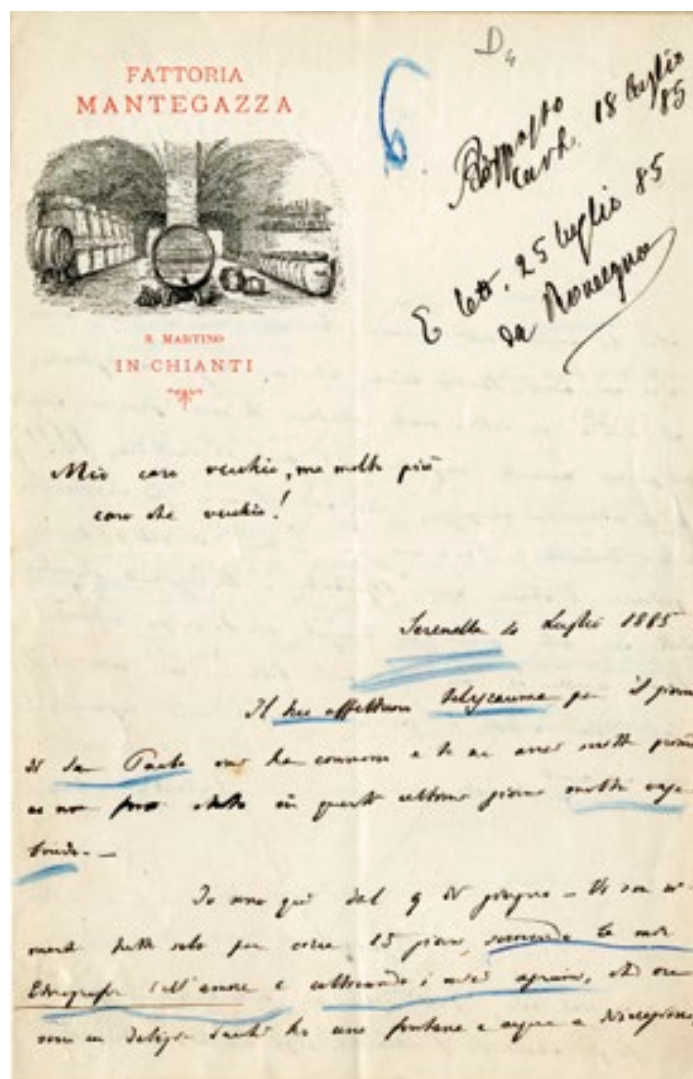 FATTORIA
MANTEGAZZA
S. MARTINO
IN CHIANTI
D4
6
Risposto
cart. 18 luglio
85
E lett. 25 luglio 85
da
Mio caro vecchio, ma molto più
caro che vecchio!
Serenella 10 Luglio 1885
Il tuo affettuoso telegramma per il giorno
di San Paolo mi ha commosso e te ne avrei scritto prima
se non fossi stato in questi ultimi giorni molto vaga-
bondo. —
Io sono qui dal 9 di giugno — Vi son ri-
masto tutto solo per circa 15 giorni, scrivendo la mia
Etnografia dell'amore e coltivando i miei agrumi. Ad ora
sono in perché ho una fontana e acqua a